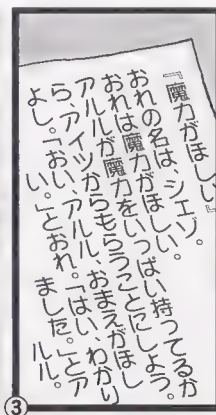 『魔力がほしい』
おれの名は、シェゾ。
おれは魔力がほしい。
アルルが魔力をいっぱい持ってるか
ら、アイツからもらうことにしよう。
よし。「おい、アルル、おまえがほし
い。」とおれ。「はい、わかり
ました。」とア
ルル。
③